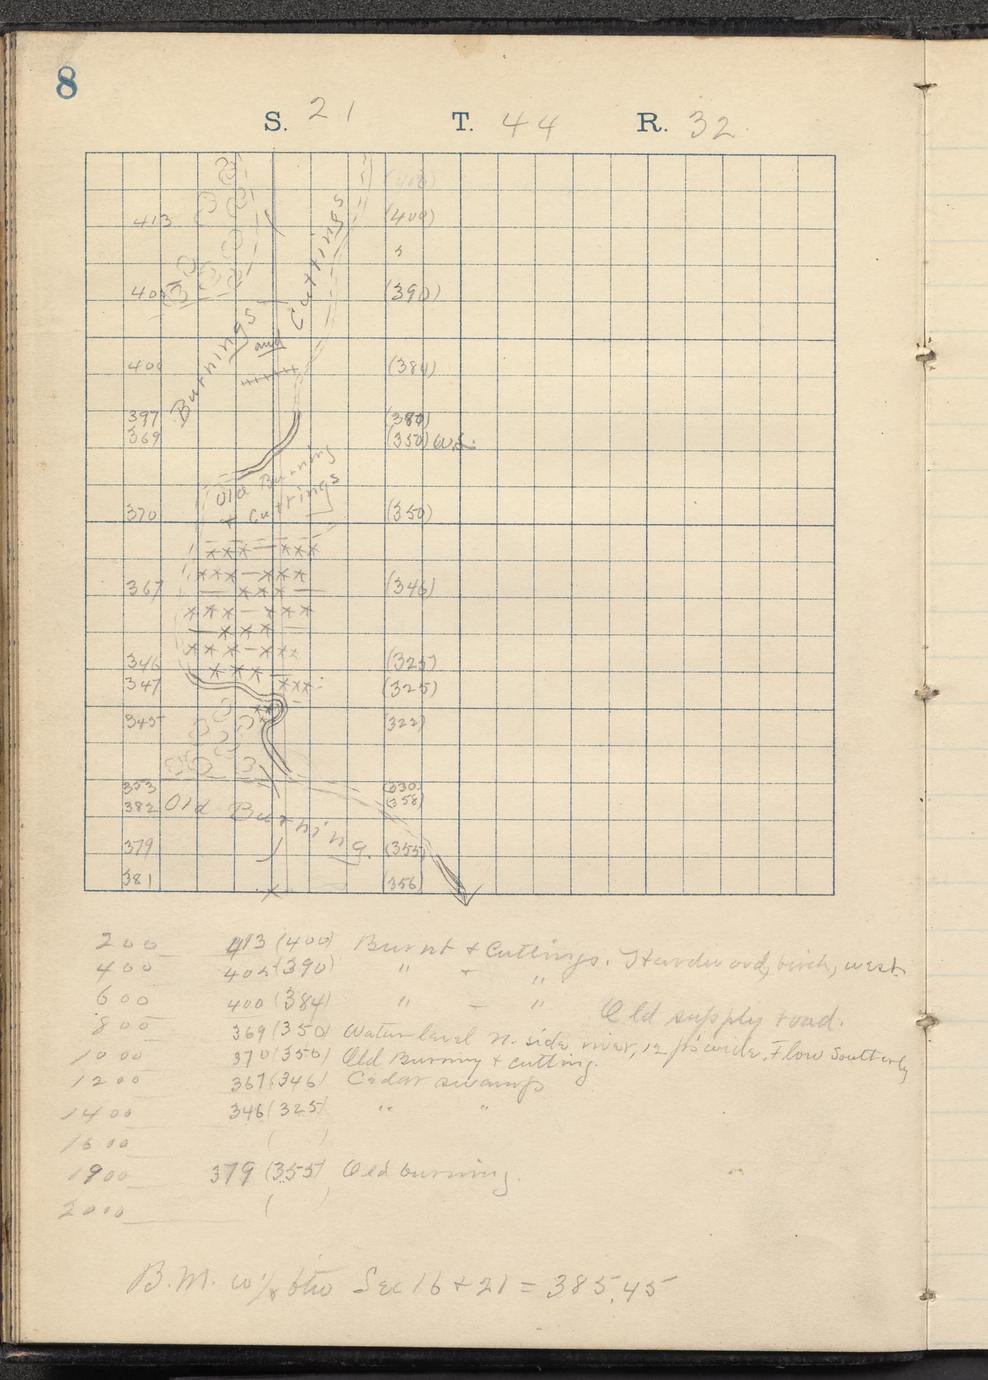 8
S. 21 T. 44 R. 32
413 (400)
5
(390)
400 (384)
Burnings and Cuttings
397 (380)
369 (350) W.L.
Old Burning
+ Cuttings
370 (350)
367 (346)
346 (325)
347 (325)
345 (322)
353
382 (358)
Old Burning
379 (355)
381 (356)
200 413 (400) Burnt + Cuttings. Hardwood, birch, west
400 405 (390) " + "
600 400 (384) " — " Old supply road.
800 369 (350) Water level N. side river, 12 wide. Flow Southerly
1000 370 (350) Old Burning + cutting.
1200 367 (346) Cedar swamp
1400 346 (325) " "
1600 ( )
1900 379 (355) Old burning.
2000 (
B.M. Sec 16 + 21 = 385.45